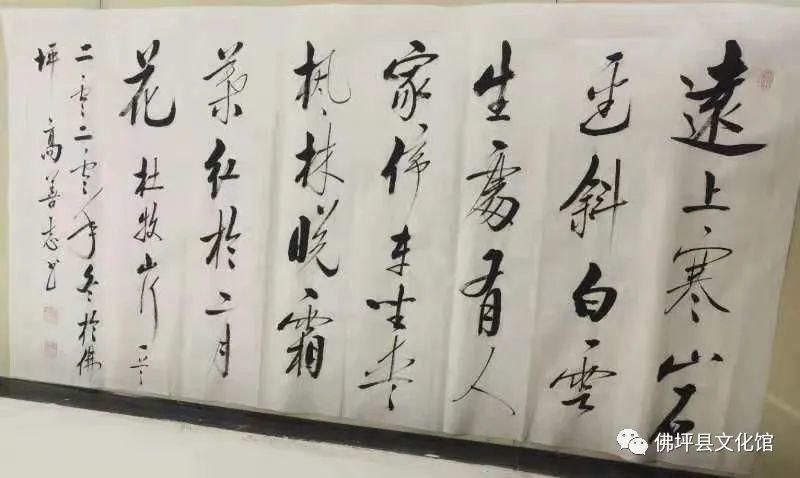 遠上寒山石
逕斜白雲
生處有人
家停车坐爱
枫林晚霜
葉红於二月
花 杜牧山行一首
二零二零年冬於佛
坪 高善志书
佛坪县文化馆